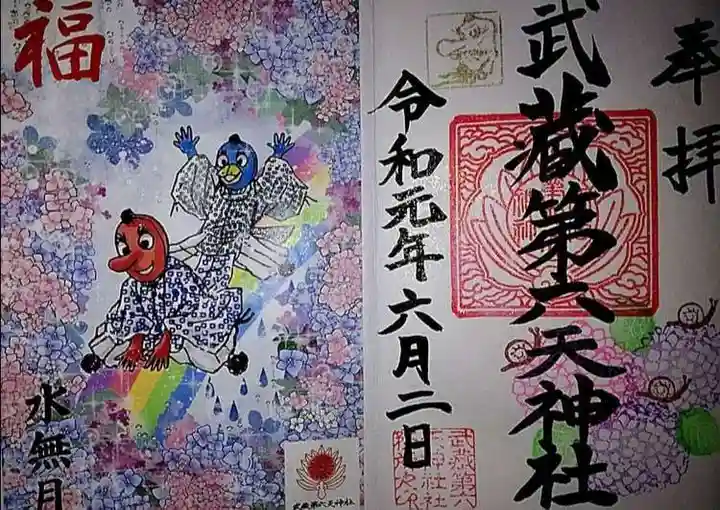 奉拝
武蔵第六天神社
令和元年六月二日
福
水無月
武蔵第六天神社